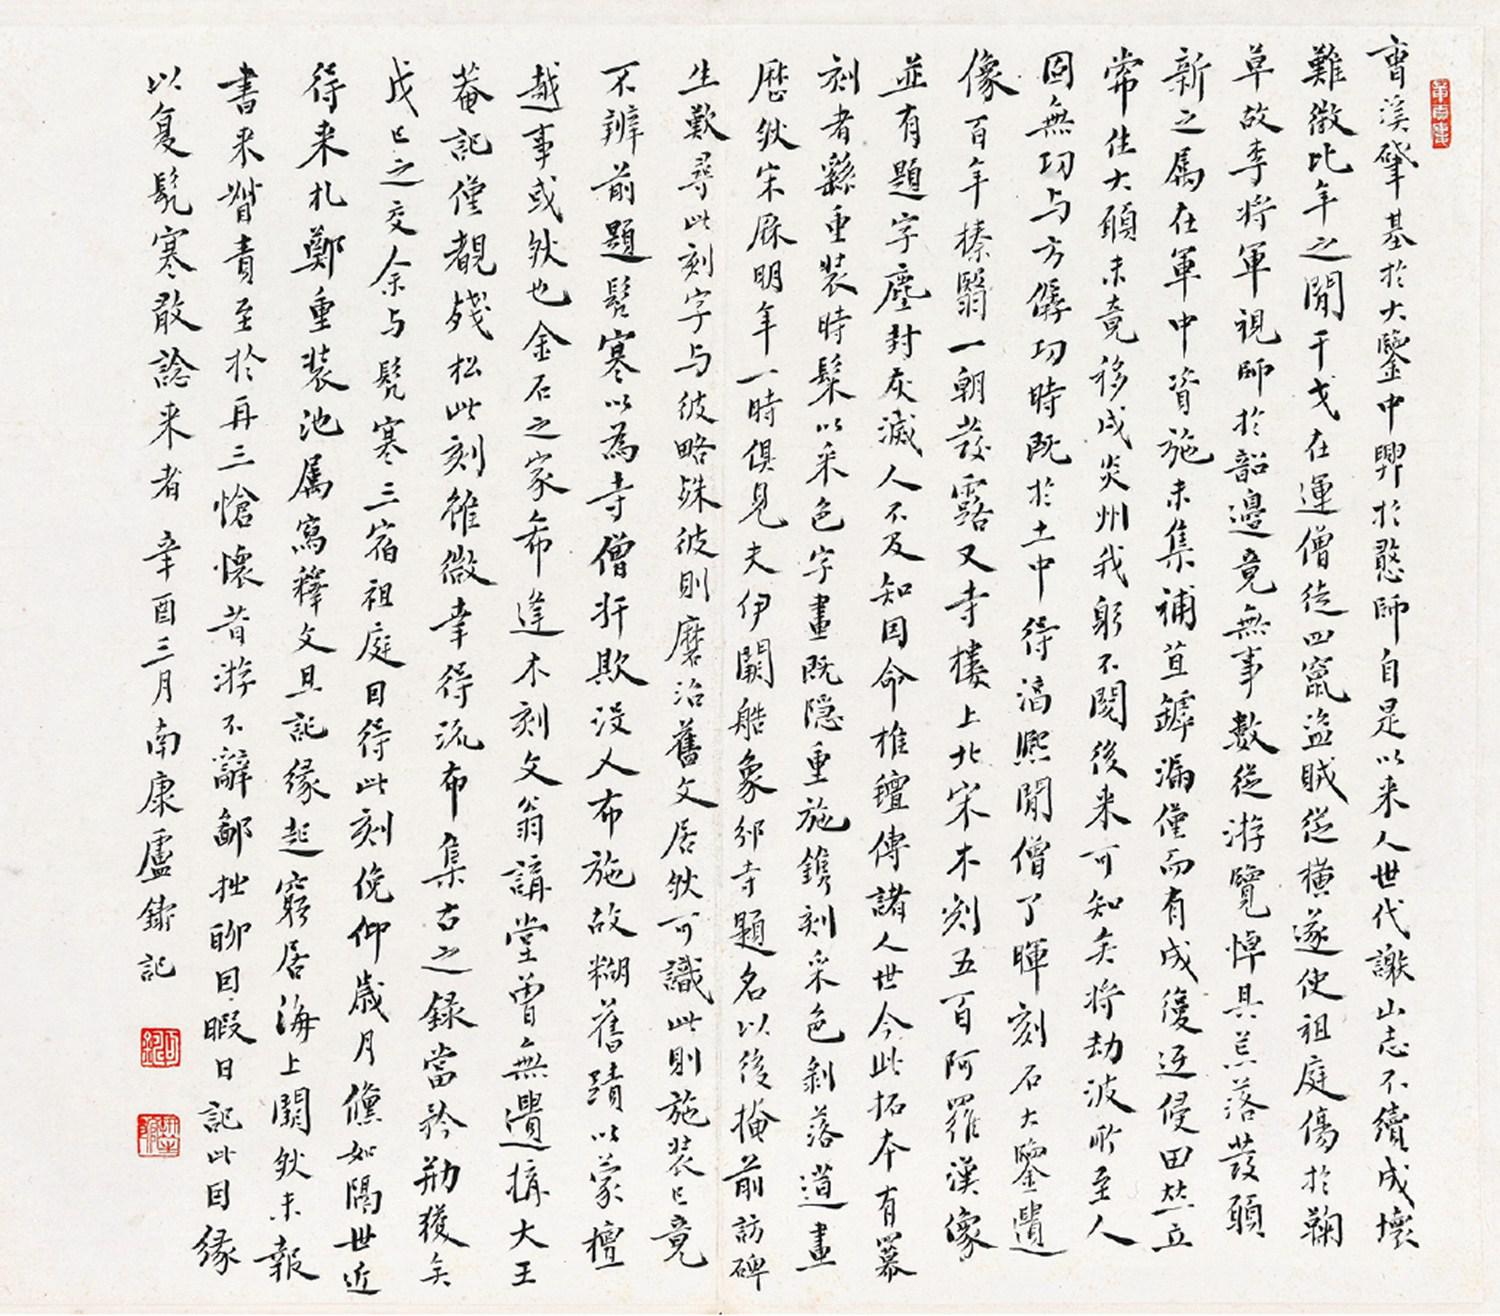 曹溪肇基於大鑒中興於憨師自是以来人世代謝山志不續成壞
難徵比年之閒干戈在運僧徒四竄盗賊從横遂使祖庭傷於鞠
草故李将軍視師於韶邊竟無事數從游覽悼其荒落發願
新之屬在軍中資施未集補苴罅漏僅而有成復迓侵田然立
常住大願未竟移戍炎州我躬不閱後来可知矣将劫波所至人
因無功与方儔功時既於土中得滈熈閒僧了暉刻石大鑒遺
像百年榛翳一朝發露又寺樓上北宋木刻五百阿羅漢像
並有題字塵封灰滅人不及知因命椎氊傳諸人世今此拓本有冪
刻者繇重装時髹以采色字畫既隠重施鐫刻采色剥落道畫
歷然宋厤明年一時俱見夫伊闕龕象邠寺題名以後掩前訪碑
生歎尋此刻字与彼略殊彼則磨治舊文居然可識此則施装已竟
不辨前題髡寒以為寺僧奸欺没人布施故糊舊蹟以蒙檀
越事或然也金石之家希逢木刻文翁講堂曽無遺搆大王
菴記僅覩殘松此刻雖微幸得流布集古之録當矜剏獲矣
戊巳之交余与髡寒三宿祖庭目得此刻俛仰歳月儵如隔世近
得来札鄭重装池屬寫釋文且記緣起窮居海上闃然未報
書来督責至於再三愴懷昔游不辭鄙拙聊因暇日記此因緣
以复髡寒敢諗来者 辛酉三月南康盧鏽記